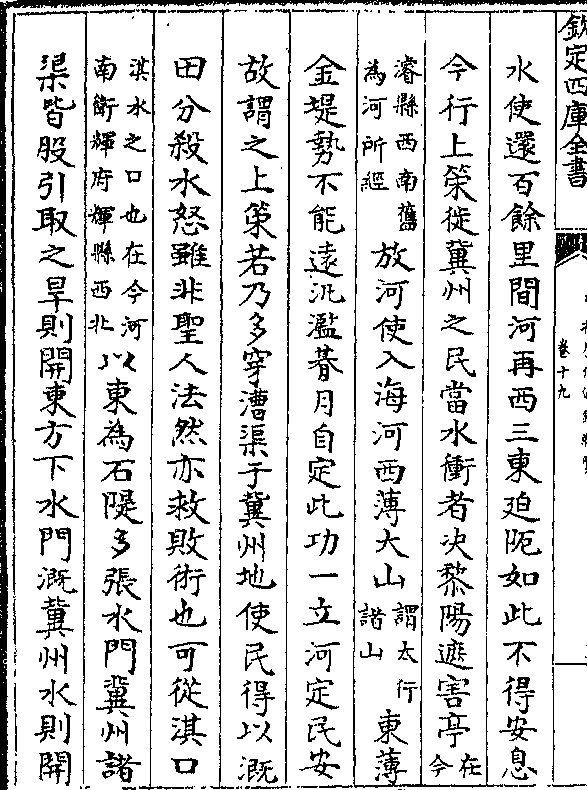 欽定四庫全書
卷十九
水使還百餘里間河再西三東迫阨如此不得安息
今行上策徙冀州之民當水衝者决黎陽遮害亭在今
濬縣西南舊為河所經放河使入海河西薄大山謂太行諸山東薄
金堤勢不能遠汎濫朞月自定此功一立河定民安
故謂之上策若乃多穿漕渠于冀州地使民得以溉
田分殺水怒雖非聖人法然亦救敗術也可從淇口
淇水之口也在今河南衛輝府輝縣西北以東為石隄多張水門冀州諸
渠皆股引取之旱則開東方下水門溉冀州水則開